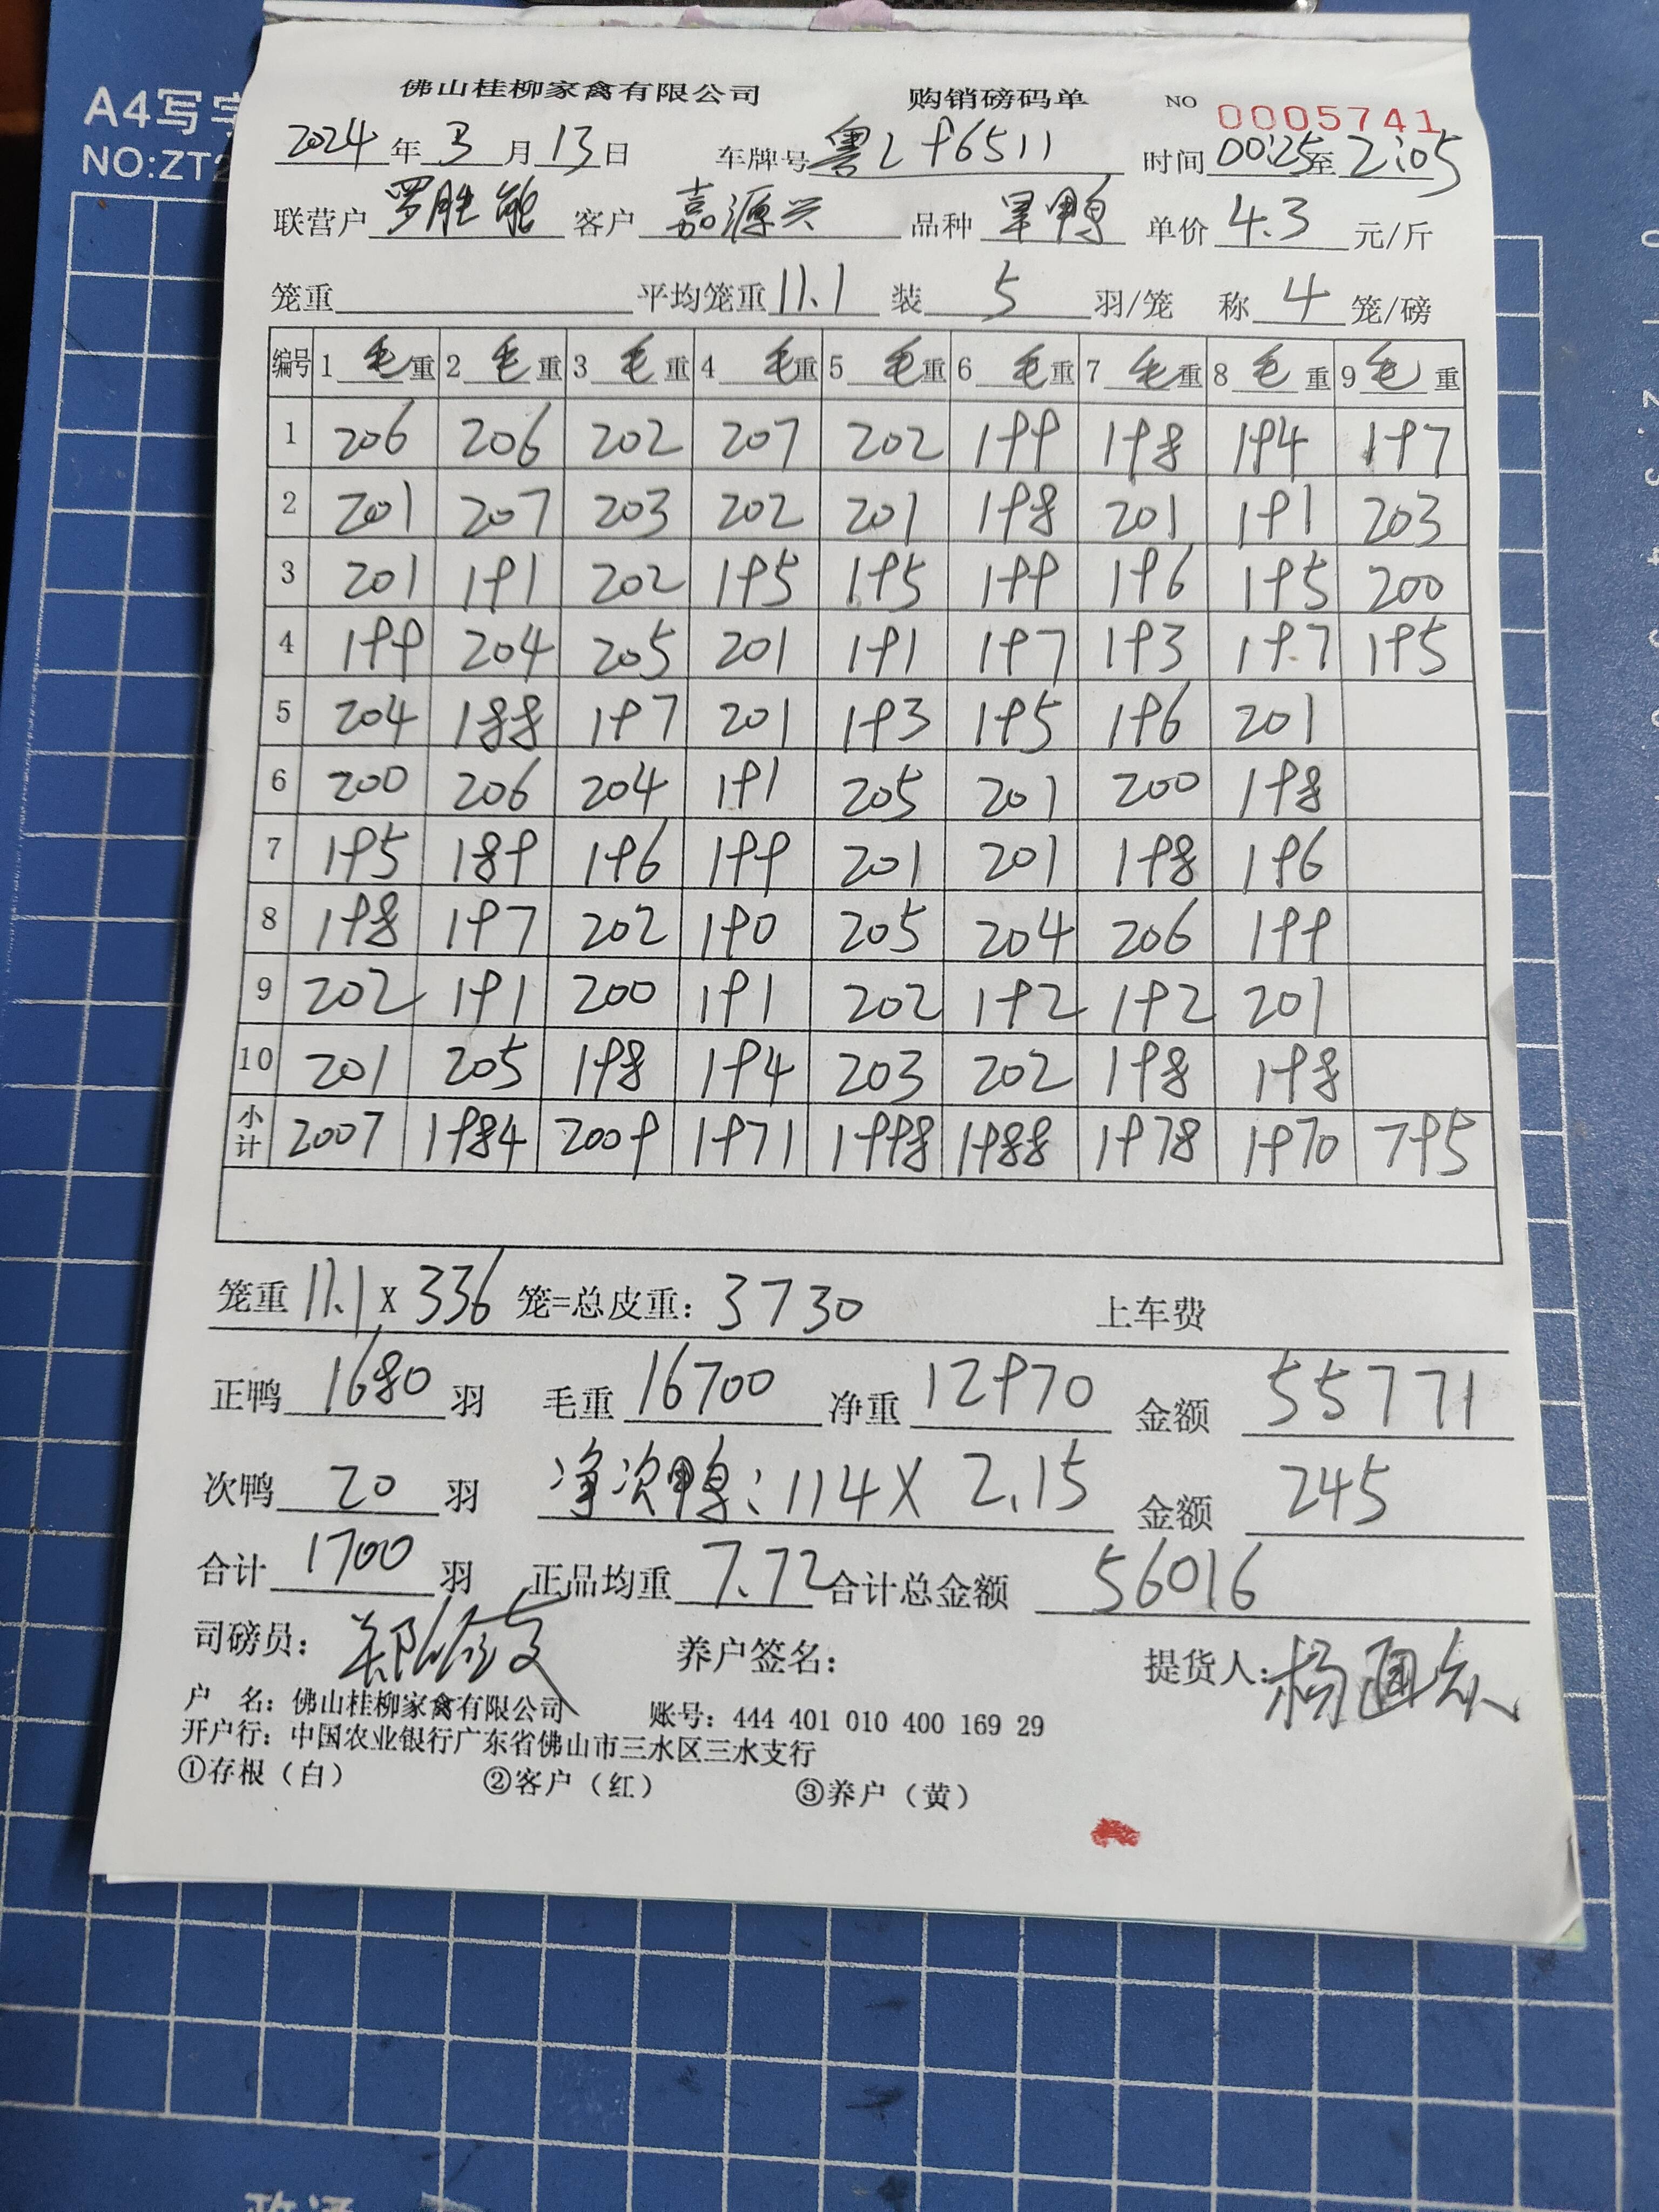 A4写字
NO:ZT2
佛山桂柳家禽有限公司 购销磅码单 NO 0005741
2024年3月13日 车牌号粤L96511 时间00:25至2:05
联营户罗胜能 客户 嘉源兴 品种 旱鸭 单价4.3元/斤
笼重 平均笼重11.1 装5羽/笼 称4笼/磅
编号 1毛重 2毛重 3毛重 4毛重 5毛重 6毛重 7毛重 8毛重 9毛重
1 206 206 202 207 202 199 198 194 197
2 201 207 203 202 201 198 201 191 203
3 201 191 202 195 195 199 196 195 200
4 199 204 205 201 191 197 193 197 195
5 204 188 197 201 193 195 196 201
6 200 206 204 191 205 201 200 198
7 195 189 196 199 201 201 198 196
8 198 197 202 190 205 204 206 199
9 202 191 200 191 202 192 192 201
10 201 205 198 194 203 202 198 198
小计 2007 1984 2009 1971 1998 1988 1978 1970 795
笼重11.1X336笼=总皮重:3730 上车费
正鸭1680羽 毛重16700 净重12970 金额55771
次鸭20羽 净次鸭:114X2.15 金额245
合计1700羽 正品均重7.72合计总金额56016
司磅员: 养户签名: 提货人:杨
户 名:佛山桂柳家禽有限公司 账号:444 401 010 400 169 29
开户行:中国农业银行广东省佛山市三水区三水支行
①存根（白） ②客户（红） ③养户（黄）